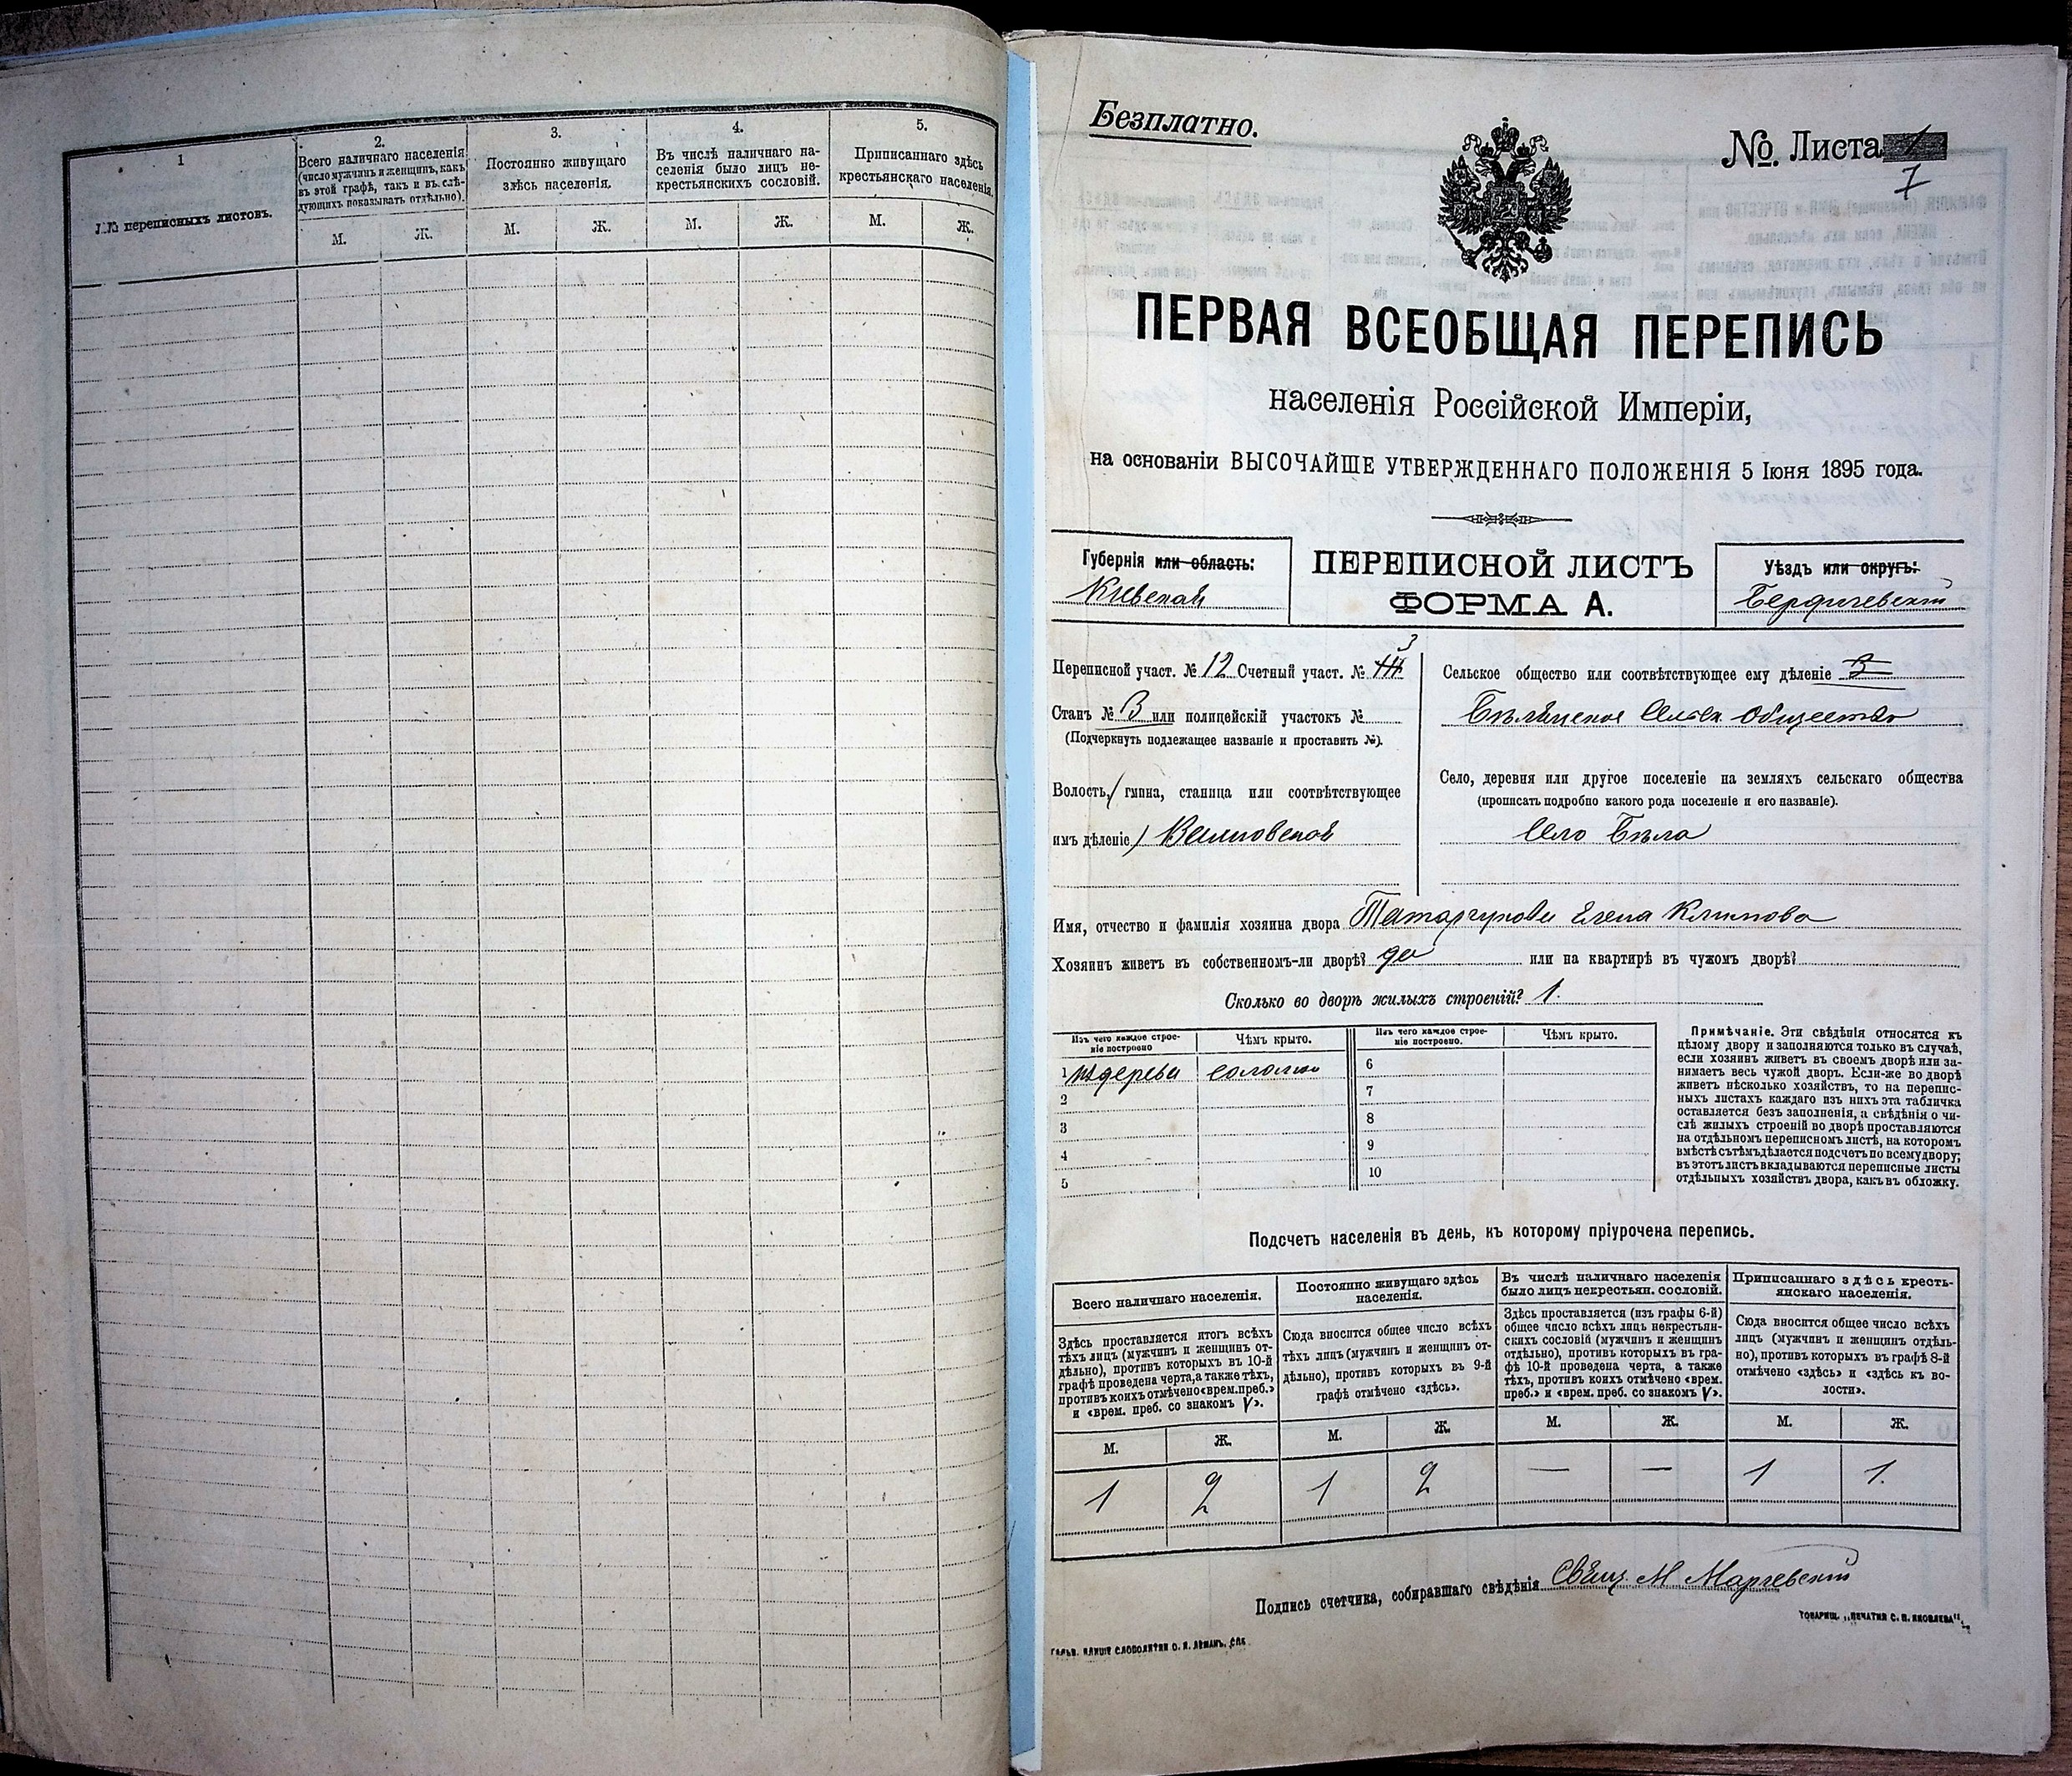 1
№№ переписныхъ листовъ.
2.
Всего наличнаго населенія
(число мужчинъ и женщинъ, какъ
въ этой графѣ, такъ и въ слѣ-
дующихъ показывать отдѣльно).
М. Ж.
3.
Постоянно живущаго
здѣсь населенія.
М. Ж.
4.
Въ числѣ наличнаго на-
селенія было лицъ не-
крестьянскихъ сословій.
М. Ж.
5.
Приписаннаго здѣсь
крестьянскаго населенія.
М. Ж.
Безплатно.
№. Листа
7
ПЕРВАЯ ВСЕОБЩАЯ ПЕРЕПИСЬ
населенія Россійской Имперіи,
на основаніи ВЫСОЧАЙШЕ УТВЕРЖДЕННАГО ПОЛОЖЕНІЯ 5 Іюня 1895 года.
Губернія или область:
Кіевская
ПЕРЕПИСНОЙ ЛИСТЪ
ФОРМА А.
Уѣздъ или округъ:
Бердичевскій
Переписной участ. № 12 Счетный участ. № 3
Станъ № 3 или полицейскій участокъ №
(Подчеркнуть подлежащее названіе и проставить №).
Волость, гмина, станица или соотвѣтствующее
имъ дѣленіе
Сельское общество или соотвѣтствующее ему дѣленіе
Общество
Село, деревня или другое поселеніе на земляхъ сельскаго общества
(прописать подробно какого рода поселеніе и его названіе).
Село Бѣла
Имя, отчество и фамилія хозяина двора Елена Климова
Хозяинъ живетъ въ собственномъ-ли дворѣ? да или на квартирѣ въ чужомъ дворѣ?
Сколько во дворѣ жилыхъ строеній? 1.
Изъ чего каждое строе-
ніе построено
Чѣмъ крыто.
Изъ чего каждое строе-
ніе построено.
Чѣмъ крыто.
1 изъ дерева соломою 6
2 7
3 8
4 9
5 10
Примѣчаніе. Эти свѣдѣнія относятся къ
цѣлому двору и заполняются только въ случаѣ,
если хозяинъ живетъ въ своемъ дворѣ или за-
нимаетъ весь чужой дворъ. Если-же во дворѣ
живетъ нѣсколько хозяйствъ, то на перепис-
ныхъ листахъ каждаго изъ нихъ эта табличка
оставляется безъ заполненія, а свѣдѣнія о чи-
слѣ жилыхъ строеній во дворѣ проставляются
на отдѣльномъ переписномъ листѣ, на которомъ
вмѣстѣ съ тѣмъ дѣлается подсчетъ по всему двору;
въ этотъ листъ вкладываются переписные листы
отдѣльныхъ хозяйствъ двора, какъ въ обложку.
Подсчетъ населенія въ день, къ которому пріурочена перепись.
Всего наличнаго населенія.
Здѣсь проставляется итогъ всѣхъ
тѣхъ лицъ (мужчинъ и женщинъ от-
дѣльно), противъ которыхъ въ 10-й
графѣ проведена черта, а также тѣхъ,
противъ коихъ отмѣчено «врем. преб.»
и «врем. преб. со знакомъ V».
М. Ж.
1 2
Постоянно живущаго здѣсь
населенія.
Сюда вносится общее число всѣхъ
тѣхъ лицъ (мужчинъ и женщинъ от-
дѣльно), противъ которыхъ въ 9-й
графѣ отмѣчено «здѣсь».
М. Ж.
1 2
Въ числѣ наличнаго населенія
было лицъ некрестьян. сословій.
Здѣсь проставляется (изъ графы 6-й)
общее число всѣхъ лицъ некрестьян-
скихъ сословій (мужчинъ и женщинъ
отдѣльно), противъ которыхъ въ гра-
фѣ 10-й проведена черта, а также
тѣхъ, противъ коихъ отмѣчено «врем.
преб.» и «врем. преб. со знакомъ V».
М. Ж.
— —
Приписаннаго здѣсь кресть-
янскаго населенія.
Сюда вносится общее число всѣхъ
лицъ (мужчинъ и женщинъ отдѣль-
но), противъ которыхъ въ графѣ 8-й
отмѣчено «здѣсь» и «здѣсь къ во-
лости».
М. Ж.
1 1.
Подпись счетчика, собиравшаго свѣдѣнія Свящ. М
ТОВАРИЩ. „ПЕЧАТНЯ С. П. ЯКОВЛЕВА“.
ГАЛЬВ. КЛИШЕ СЛОВОЛИТНИ О. И. ЛЕМАНЪ, СПБ